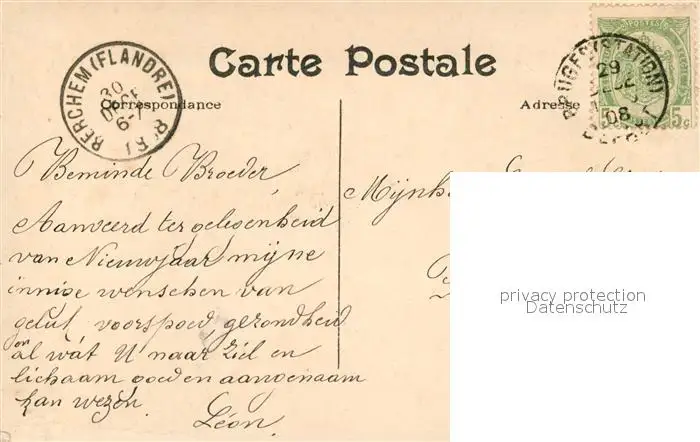 Carte Postale
Correspondance
Adresse
BERCHEM (FLANDRE)
30
DECE
6-7
1908
BRUGES (STATION)
29
08
DEPART
POSTES
5c
Beminde Broeder,
Aanveerd ter gelegenheid
van Nieuwjaar mijne
innige wenschen van
geluk, voorspoed, gezondheid
en
al wat U naar ziel en
lichaam goed en aangenaam
kan wezen.
Léon.
Mijnh
privacy protection
Datenschutz